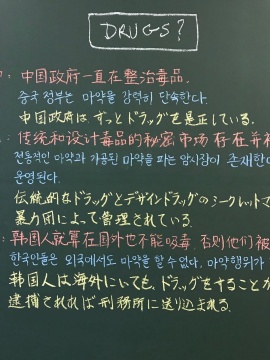 DRUGS?
: 中国政府一直在整治毒品.
중국 정부는 마약을 강력히 단속한다.
中国政府は ずっとドラッグを是正している.
: 传统和设计毒品的秘密市场存在并被
전통적인 마약과 가공된 마약을 파는 암시장이 존재한다
운영된다.
伝統的なドラッグとデザインドラッグのシークレットマ
暴力団によって管理されている.
: 韩国人就算在国外也不能吸毒 否则他们被
한국인들은 외국에서도 마약을 할 수 없다. 마약행위가
韓国人は海外にいても、ドラッグをすることが
逮捕されれば刑務所に送り込まれる.